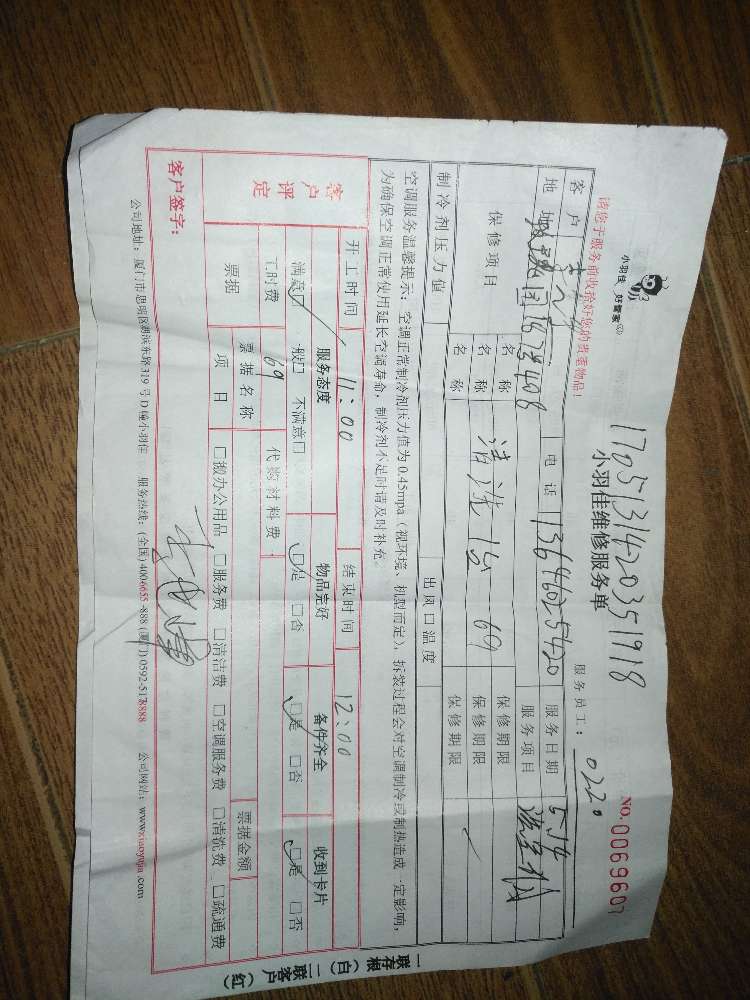 小羽佳 好管家
1705131420351918
小羽佳维修服务单
NO.0069607
请您于服务前收拾好您的贵重物品!
服务员工: 0220
客户 电话 13696025420 服务日期 5.14
地址 408 服务项目
保修项目 名称 保修期限
名称 清洗 1台 69 保修期限
名称 保修期限
制冷剂压力值 出风口温度
空调服务温馨提示: 空调正常制冷剂压力值为0.45mpa (视环境、机型而定), 拆装过程会对空调制冷或制热造成一定影响,
为确保空调正常使用延长空调寿命, 制冷剂不足时请及时补充。
客户评定
开工时间 11:00 结束时间 12:00
服务态度 物品完好 备件齐全 收到卡片
满意□ 一般□ 不满意□ □是 □否 □是 □否 □是 □否
工时费 69 代购材料费
票据 票据名称 票据金额
项目 □搬办公用品 □服务费 □清洁费 □空调服务费 □清洗费 □疏通费
客户签字:
公司地址: 厦门市思明区 319号D幢小羽佳 服务热线: (全国)4006655-888 (厦门)0592-5178888 公司网站: www.xiaoyujia.com
一联存根(白) 二联客户(红)